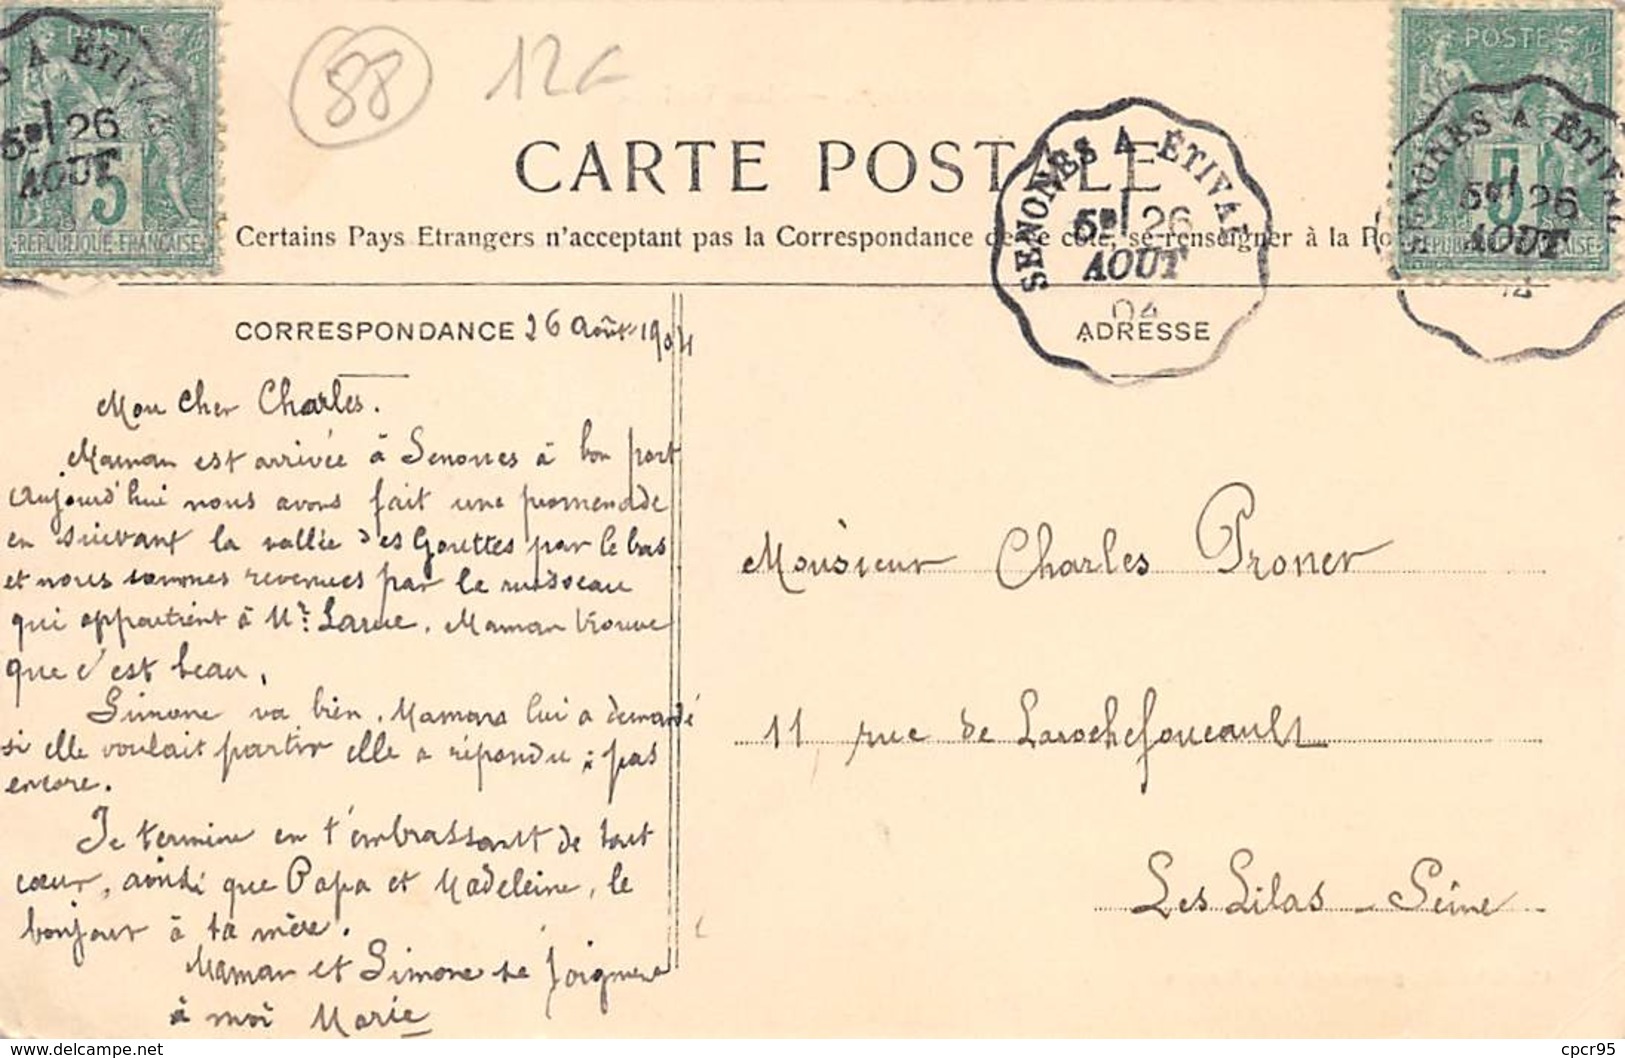 POSTE
A ETIVAL
5E 26
AOUT
5
REPUBLIQUE FRANÇAISE
88
12€
CARTE POSTALE
SENONES A ETIVAL
5E 26
AOUT
04
POSTE
SENONES A ETIVAL
5E 26
AOUT
5
Certains Pays Etrangers n'acceptant pas la Correspondance de ce côté, se renseigner à la Po
CORRESPONDANCE 26 Août 1904
ADRESSE
Mon cher Charles.
Maman est arrivée à Senones à bon port
Aujourd'hui nous avons fait une promenade
en suivant la vallée des Gouttes par le bas
et nous sommes revenues par le ruisseau
qui appartient à Mr. Larue. Maman trouve
que c'est beau.
Simone va bien. Maman lui a demandé
si elle voulait partir elle a répondu : pas
encore.
Je termine en t'embrassant de tout
cœur, ainsi que Papa et Madeleine, le
bonjour à ta mère.
Maman et Simone se joignent
à moi Marie
Monsieur Charles Proner
11 rue de Larochefoucault
Les Lilas - Seine
www.delcampe.net
cpcr95